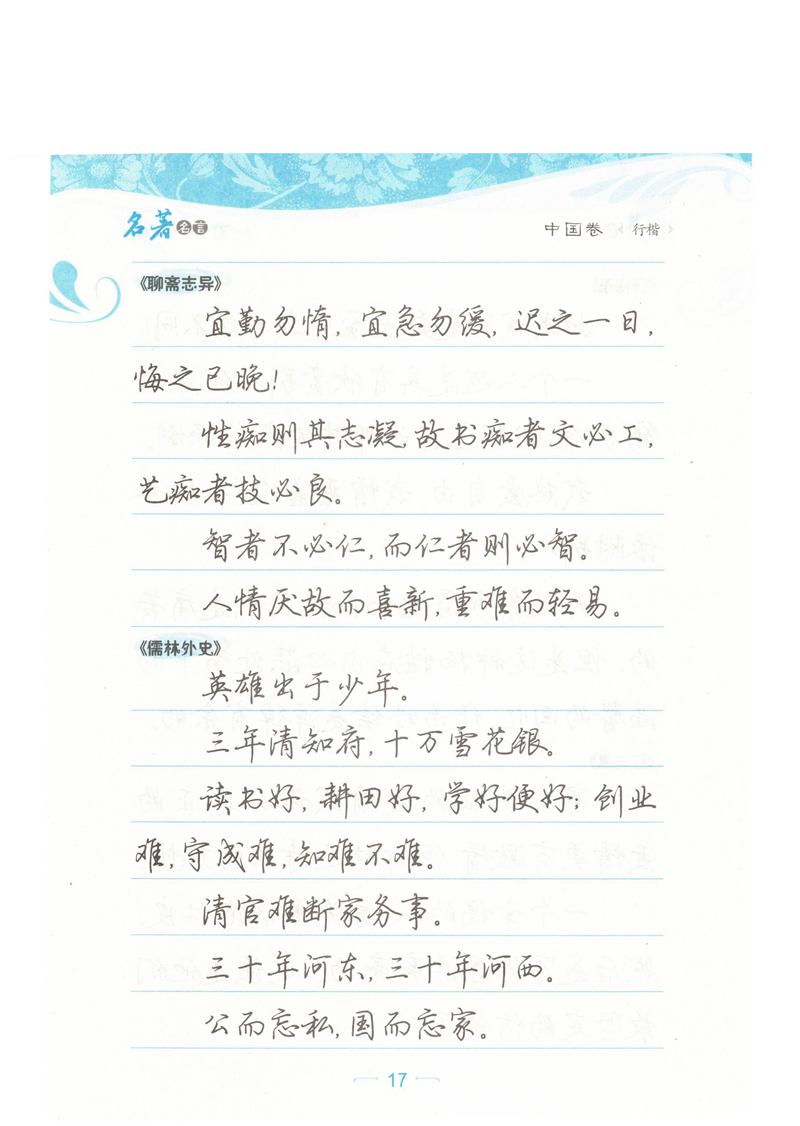 名著名言 中国卷 行楷
《聊斋志异》
宜勤勿惰，宜急勿缓，迟之一日，
悔之已晚！
性痴则其志凝，故书痴者文必工，
艺痴者技必良。
智者不必仁，而仁者则必智。
人情厌故而喜新，重难而轻易。
《儒林外史》
英雄出于少年。
三年清知府，十万雪花银。
读书好，耕田好，学好便好；创业
难，守成难，知难不难。
清官难断家务事。
三十年河东，三十年河西。
公而忘私，国而忘家。
17